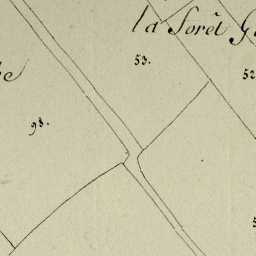 la forêt
53.
52
98.